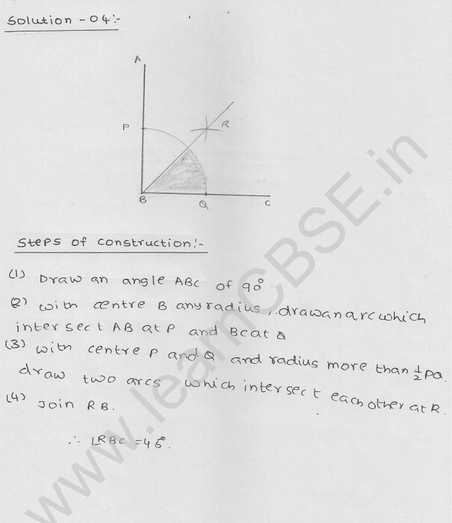 Solution - 04:-
A
P
R
B
Q
C
Steps of construction:-
(1) Draw an angle ABC of 90°
(2) with centre B any radius, drawan arc which
intersect AB at P and BC at Q
(3) with centre P and Q and radius more than 1/2 PQ.
draw two arcs which intersect each other at R.
(4) Join RB.
∴ ∠RBC = 45°.
www.learnCBSE.in